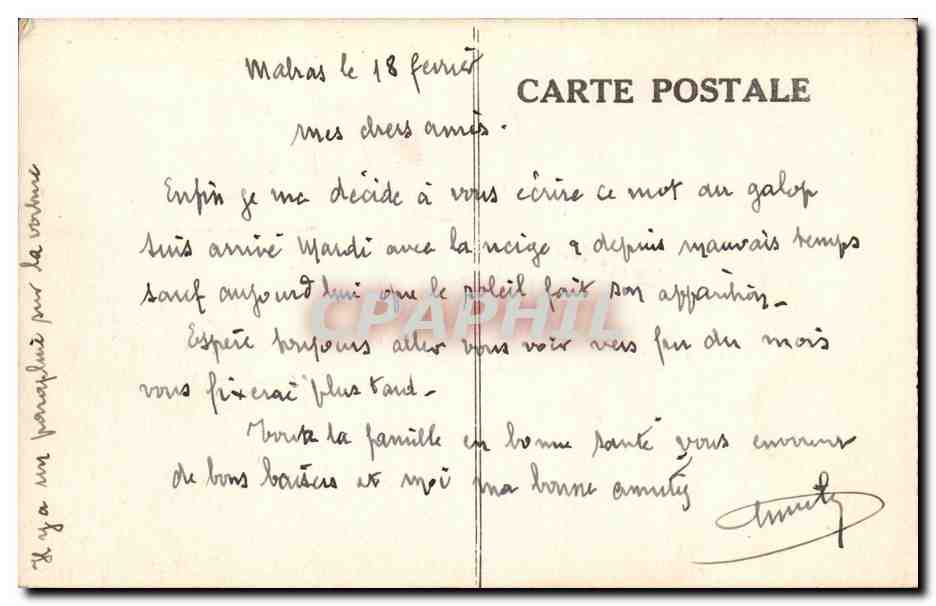 CARTE POSTALE
Mabras le 18 février
mes chers amis.
Enfin je me décide à vous écrire ce mot au galop
suis arrivé Mardi avec la neige & depuis mauvais temps
sauf aujourd'hui que le soleil fait son apparition_
Espère toujours aller vous voir vers fin du mois
vous fixerai plus tard_
Toute la famille en bonne santé vous envoient
de bons baisers et moi ma bonne amitié
Il y a un parapluie sur la voiture
CPAPHIL